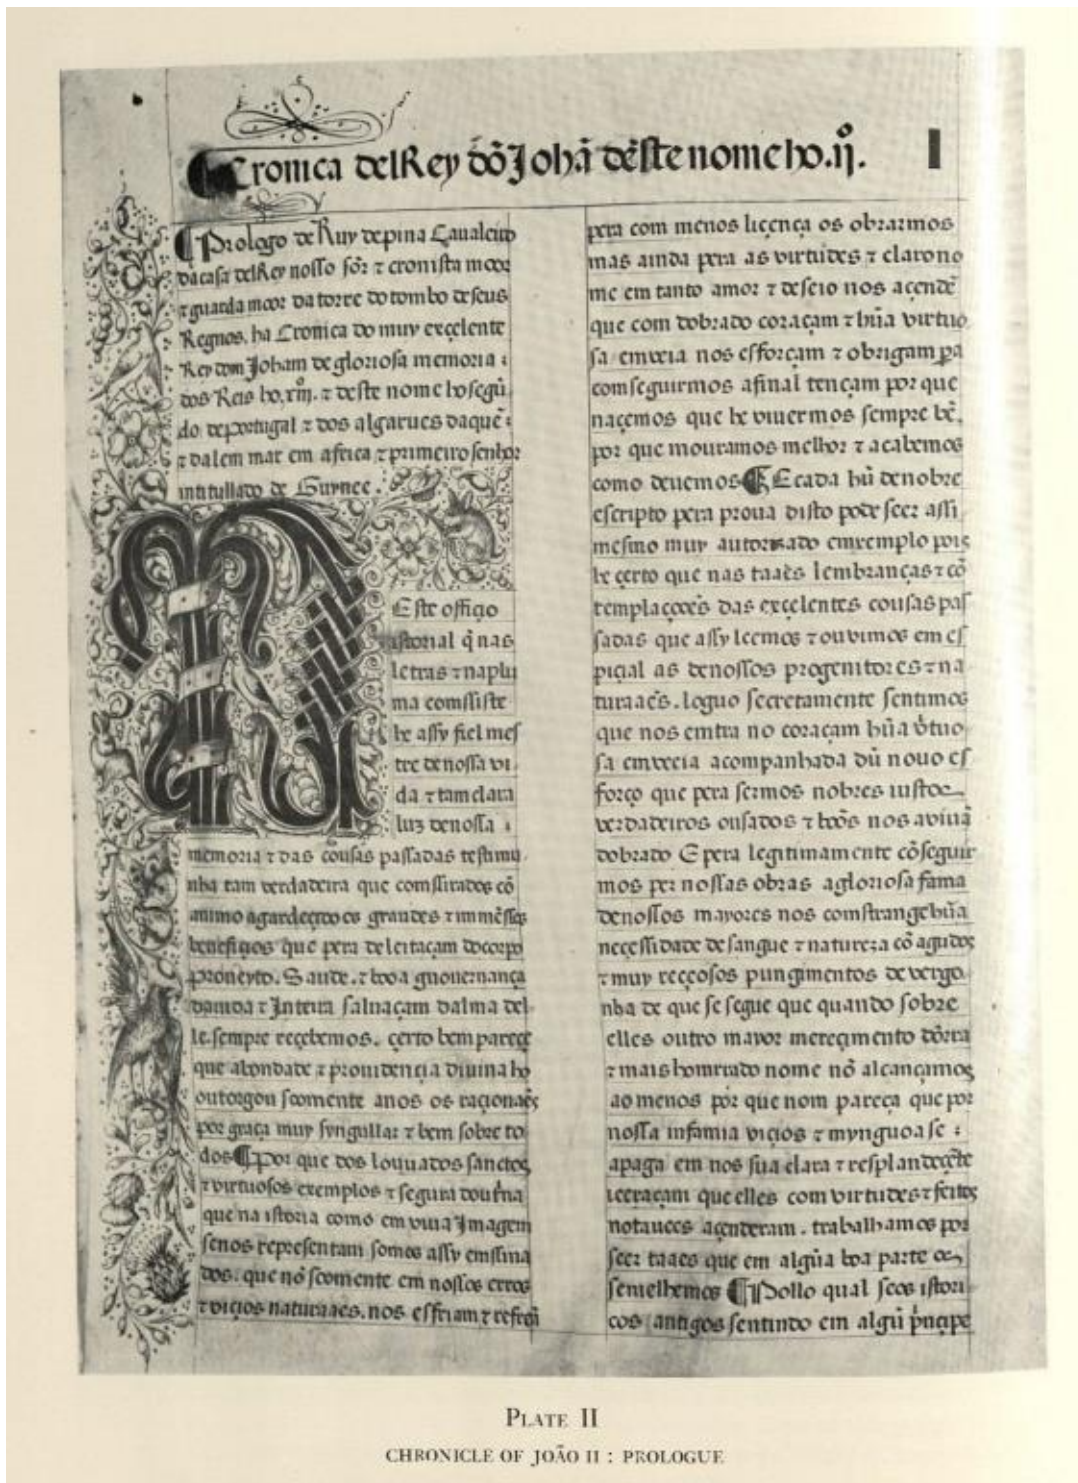 Cronica delRey dõ Johã dẽste nome ho .ij.
I
¶ Prologo de Ruy depina Caualeiro
da casa delRey nosso sõr ⁊ cronista moor
⁊ guarda moor da torre do tombo de seus
Regnos. ha Cronica do muy exçelente
Rey dom Joham de gloriosa memoria :
dos Reis ho. xiij. ⁊ deste nome ho segũ
do deportugal ⁊ dos algarues daquẽ :
⁊ dalem mar em africa ⁊ primeiro senhor
intitullado de Guynee.
Este offiçio
istorial q̃ nas
letras ⁊ naplu
ma comssiste
he assy fiel mes
tre de nossa vi
da ⁊ tam clara
luz denossa :
memoria ⁊ das cousas passadas testimu
nha tam verdadeira que comssirados cõ
animo agardeçido os grandes ⁊ immẽssos
benefiçios que pera deleitaçam do corpo
proueyto. Saude. ⁊ boa guouernança
dauida ⁊ Inteira saluaçam dalma del
le sempre reçebemos. çerto bem pareçe
que abondade ⁊ prouidençia diuina ho
outorgou soomente anos os raçionaẽs
por graça muy syngullar ⁊ bem sobre to
dos ¶ Por que dos louuados sanctos
⁊ virtuosos exemplos ⁊ segura doutrina
que na istoria como em viua Jmagem
senos representam somos assy emssina
dos. que nõ soomente em nossos erros
⁊ viçios naturaaes. nos esfriam ⁊ refreã
pera com menos liçença os obrarmos
mas ainda pera as virtudes ⁊ claro no
me em tanto amor ⁊ deseio nos açendẽ
que com dobrado coraçam ⁊ hũa virtuo
sa emveia nos esforçam ⁊ obrigam pera
comseguirmos afinal tençam por que
naçemos que he viuermos sempre bẽ.
por que mouramos melhor ⁊ acabemos
como deuemos ¶ E cada hũ denobre
escripto pera proua disto pode seer assi
mesmo muy autorizado emxemplo pois
he çerto que nas taaẽs lembranças ⁊ cõ
templaçoões das exçelentes cousas pas
sadas que assy leemos ⁊ ouvimos em es
piçial as denossos progenitores ⁊ na
turaaẽs. loguo secretamente sentimos
que nos emtra no coraçam hũa v̓tuo
sa emveeia acompanhada dũ nouo es
forço que pera sermos nobres iustos
verdadeiros ousados ⁊ boõs nos aviuã
dobrado E pera legitimamente cõseguir
mos per nossas obras agloriosa fama
denossos mayores nos comstrange hũa
neçessidade de sangue ⁊ natureza cõ agudos
⁊ muy reçeosos pungimentos de vergo
nha de que se segue que quando sobre
elles outro mayor mereçimento dõrra
⁊ mais homrrado nome nõ alcançamos
ao menos por que nom pareça que por
nossa infamia viçios ⁊ mynguoa se :
apaga em nos sua clara ⁊ resplandeçẽte
que elles com virtudes ⁊ feitos
notauees açenderam. trabalhamos por
seer taaes que em algũa boa parte os
semelhemos ¶ Pollo qual seos istori
cos antigos sentindo em algũ prinçipe
PLATE II
CHRONICLE OF JOÃO II : PROLOGUE